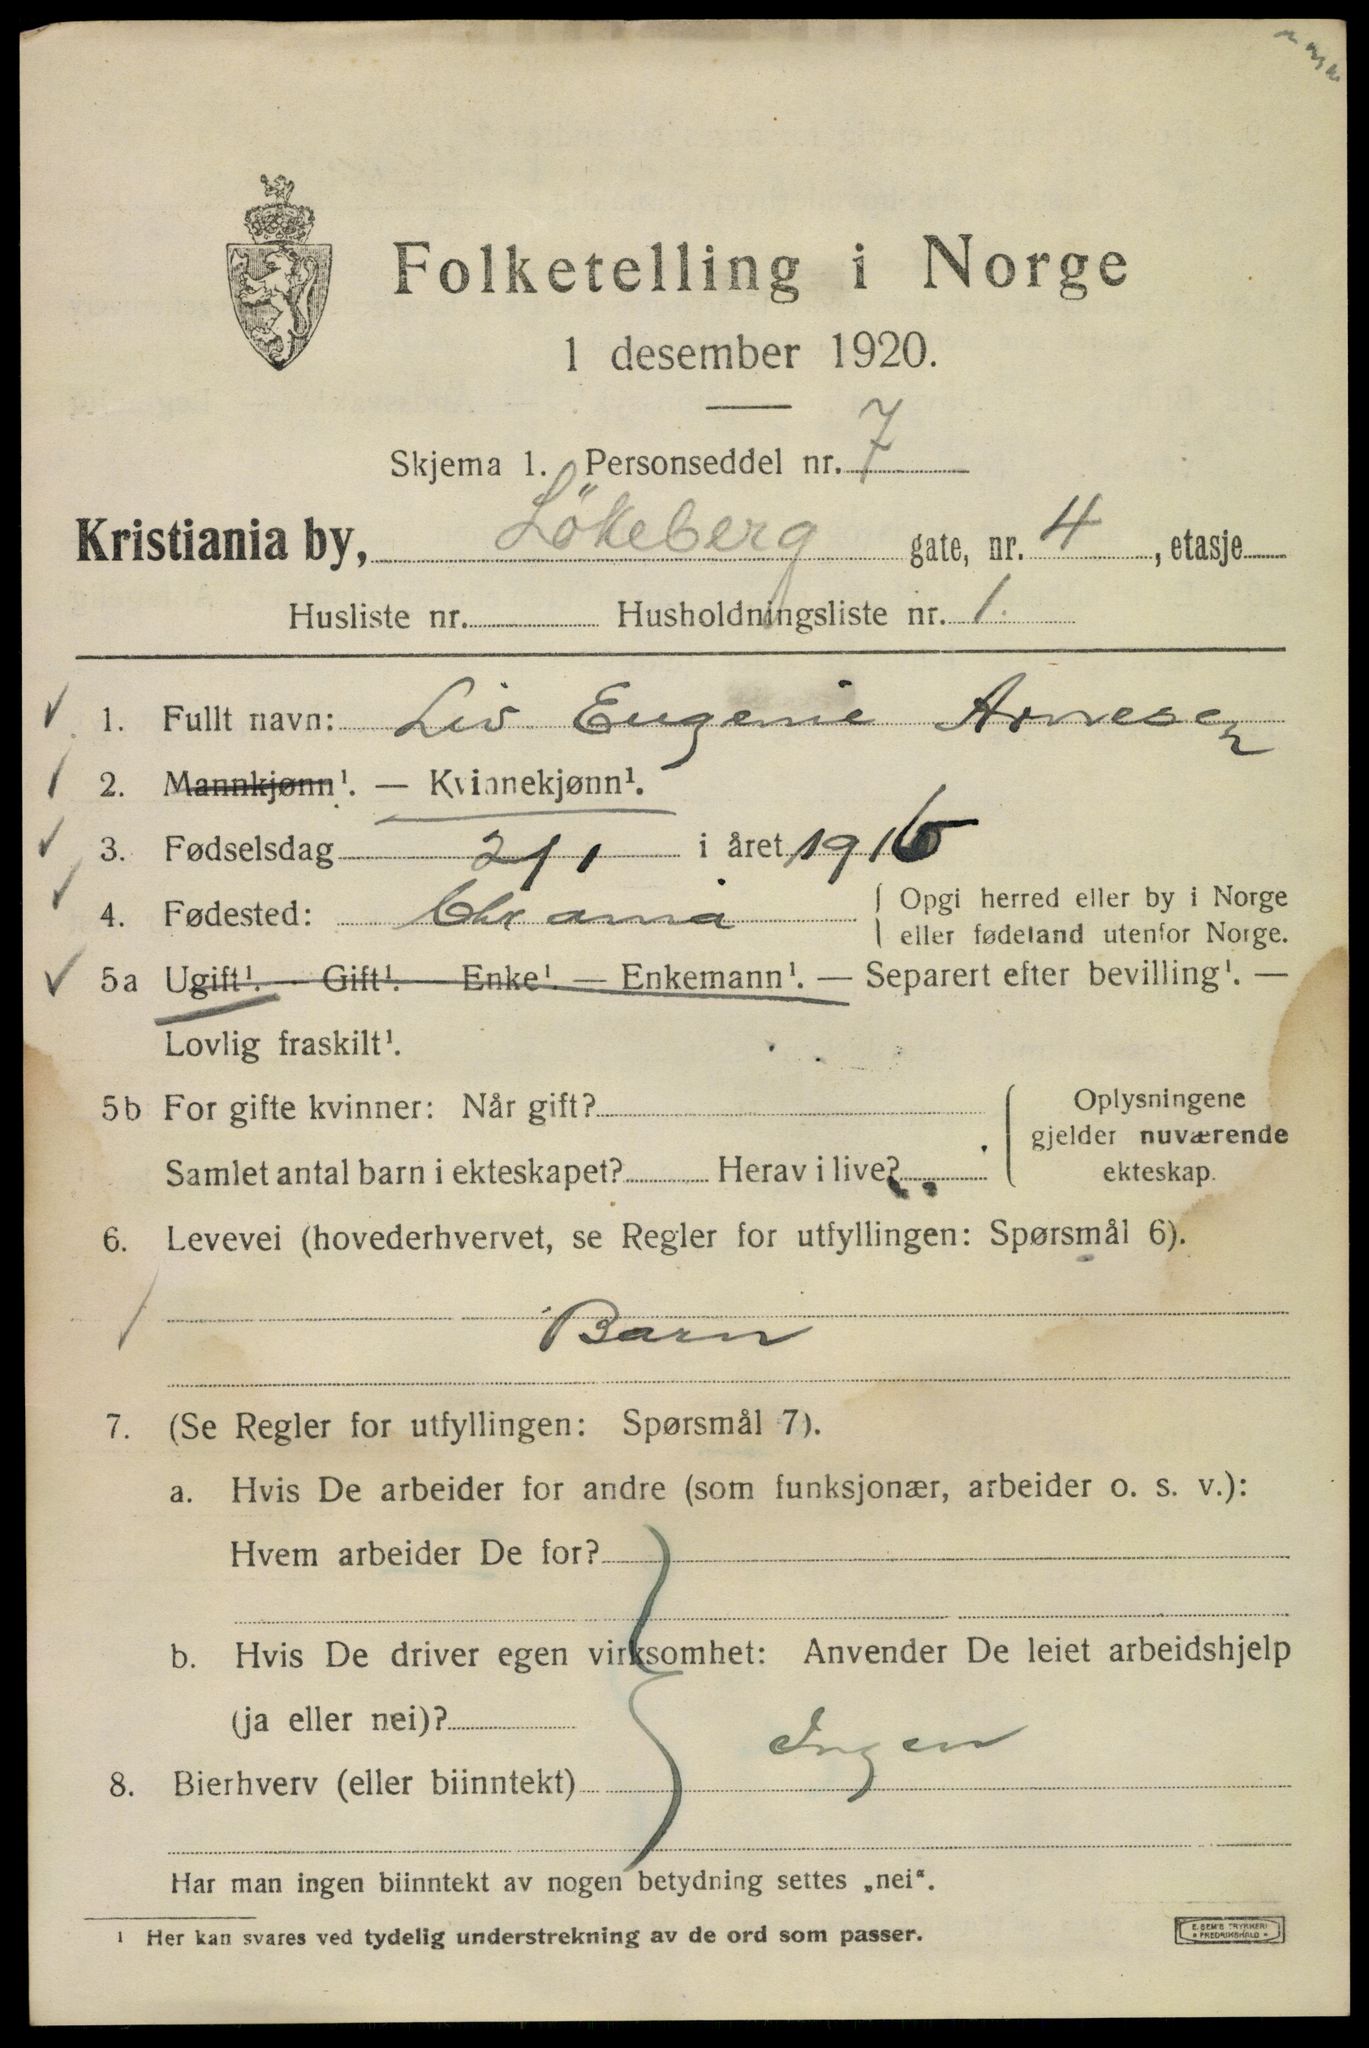 Folketelling i Norge
1 desember 1920.
Skjema 1. Personseddel nr. 7
Kristiania by, Lökeberg gate, nr. 4, etasje
Husliste nr. Husholdningsliste nr. 1.
1. Fullt navn: Liv Eugenie Arnesen
2. Mannkjønn¹. — Kvinnekjønn¹.
3. Fødselsdag 2/1 i året 1916
4. Fødested: Chr ania { Opgi herred eller by i Norge
eller fødeland utenfor Norge.
5a Ugift¹. — Gift¹. — Enke¹. — Enkemann¹. — Separert efter bevilling¹. —
Lovlig fraskilt¹.
5b For gifte kvinner: Når gift? { Oplysningene
gjelder nuværende
Samlet antal barn i ekteskapet? Herav i live? ekteskap.
6. Levevei (hovederhvervet, se Regler for utfyllingen: Spørsmål 6).
Barn
7. (Se Regler for utfyllingen: Spørsmål 7).
a. Hvis De arbeider for andre (som funksjonær, arbeider o. s. v.):
Hvem arbeider De for?
b. Hvis De driver egen virksomhet: Anvender De leiet arbeidshjelp
(ja eller nei)?
Ingen
8. Bierhverv (eller biinntekt)
Har man ingen biinntekt av nogen betydning settes „nei“.
¹ Her kan svares ved tydelig understrekning av de ord som passer.
E. SEM'S TRYKKERI
FREDRIKSHALD